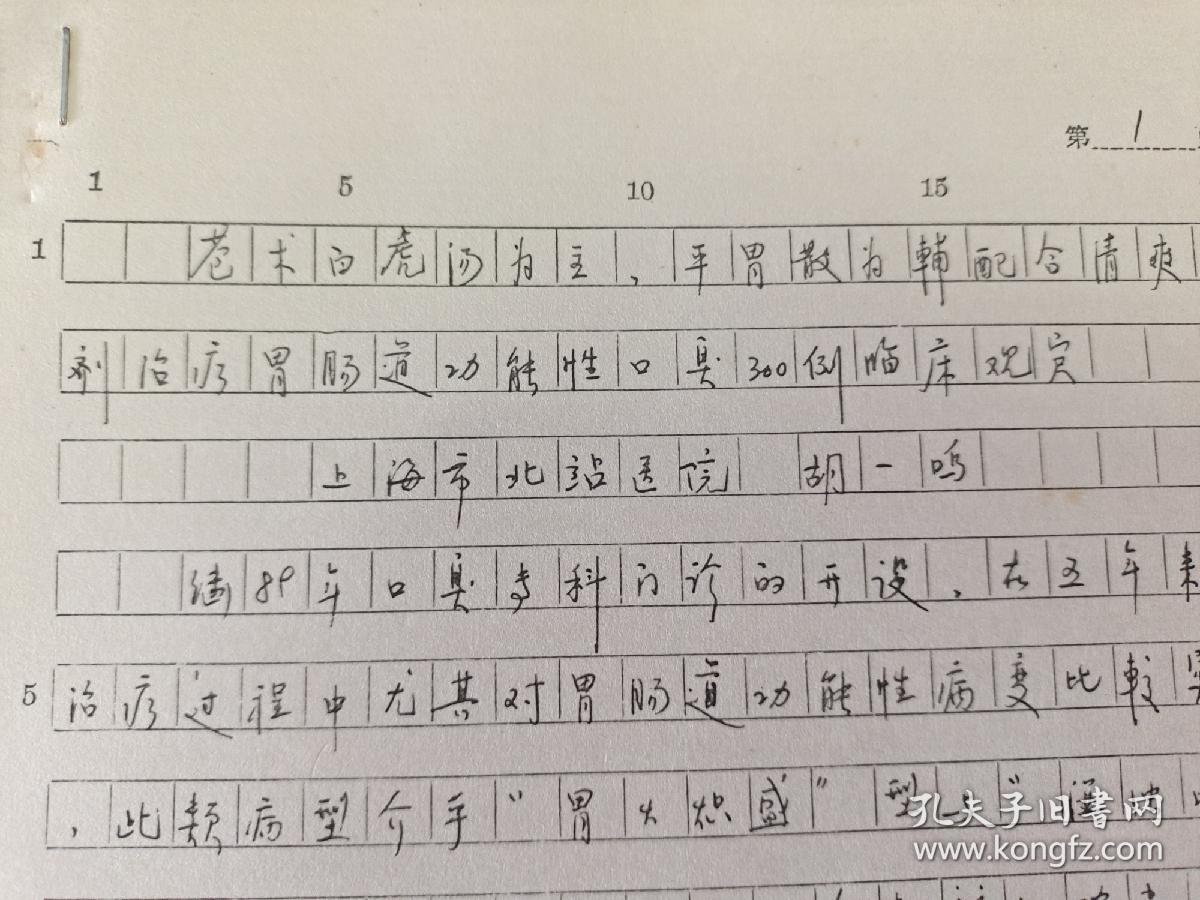 第 1
1 5 10 15
1 苍术白虎汤为主、平胃散为輔配合清爽
剂治疗胃肠道功能性口臭300例临床观察
上海市北站医院 胡一鸣
继89年口臭专科门诊的开设,在五年来
5 治疗过程中尤其对胃肠道功能性病变比較
,此类病型介乎“胃火炽盛”型
孔夫子旧書网
www.kongfz.com